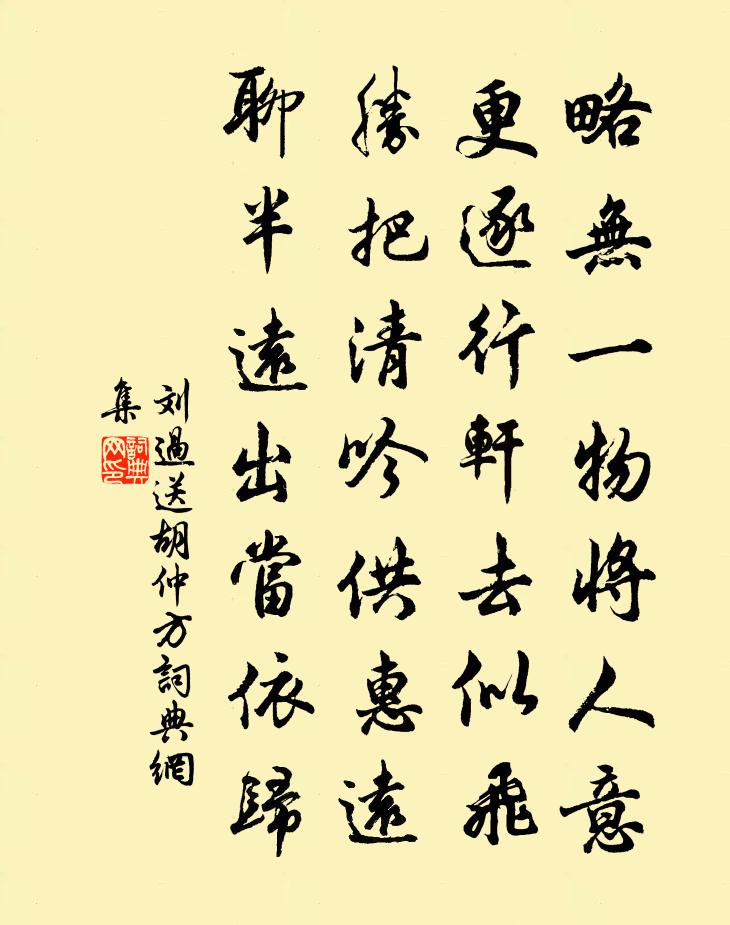 略無一物將人意
更逐行軒去似飛
勝把清吟供惠遠
聊半遠出當依歸
刘過送胡仲方詞典網
集
詞典
网印